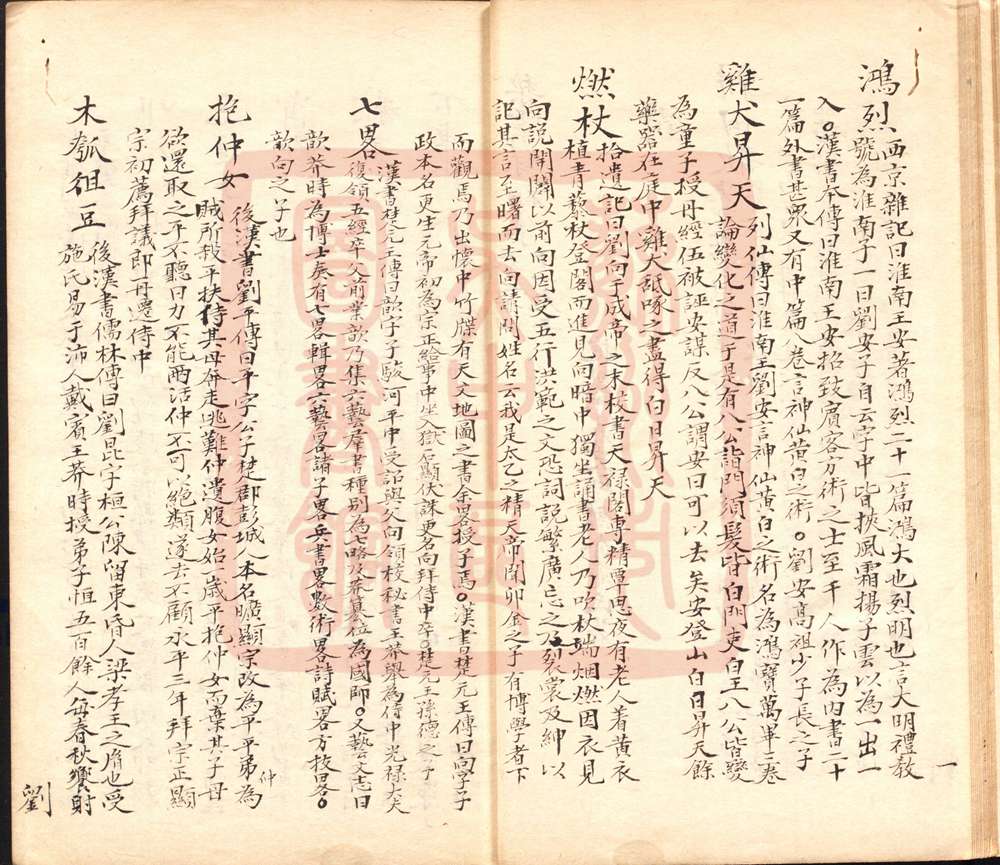 鴻烈 西京雜記曰淮南王安著鴻烈二十一篇鴻大也烈明也言大明禮教
號為淮南子一曰劉安子自云字中皆挾風霜揚子雲以為一出一
入。漢書本傳曰淮南王安招致賓客方術之士至千人作為內書二十
一篇外書甚眾又有中篇八卷言神仙黃白之術。劉安高祖少子長之子
雞犬昇天 列仙傳曰淮南王劉安言神仙黃白之術名為鴻寶萬畢三卷
論變化之道于是有八公詣門須髮皆白門吏白王八公皆變
為童子授丹經伍被誣安謀反八公謂安曰可以去矣安登山白日昇天餘
藥器在庭中雞犬舐啄之盡得白日昇天
燃杖 拾遺記曰劉向于成帝之末校書天祿閣專精覃思夜有老人着黃衣
植青藜杖登閣而進見向暗中獨坐誦書老人乃吹杖端烟燃因衣見
向說開闢以前向因受五行洪範之文恐詞說繁廣忘之乃裂裳及紳以
記其言至曙而去向請問姓名云我是太乙之精天帝聞卯金之子有博學者下
而觀焉乃出懷中竹牒有天文地圖之書余畧授子焉。漢書楚元王傳曰向字子
政本名更生元帝初為宗正給事中坐入獄石顯伏誅更名向拜侍中卒。楚元王孫德之子
七畧 漢書楚元王傳曰歆字子駿河平中受詔與父向領校秘書王莽舉為侍中光祿大夫
復領五經卒父前業歆乃集六藝羣書種別為七略及莽篡位為國師。又藝文志曰
歆莽時為博士矣有七畧輯畧六藝畧諸子畧兵書畧數術畧詩賦畧方技畧。
歆向之子也
抱仲女 後漢書劉平傳曰平字公子楚郡彭城人本名曠顯宗改為平平弟仲為
賊所殺平扶侍其母奔走逃難仲遺腹女始一歲平抱仲女而棄其子母
欲還取之平不聽曰力不能兩活仲不可以絕類遂去不顧永平三年拜宗正顯
宗初薦拜議郎再遷侍中
木瓠徂豆 後漢書儒林傳曰劉昆字桓公陳留東昏人梁孝王之胤也受
施氏易于沛人戴賓王莽時授弟子恒五百餘人每春秋饗射
一
劉